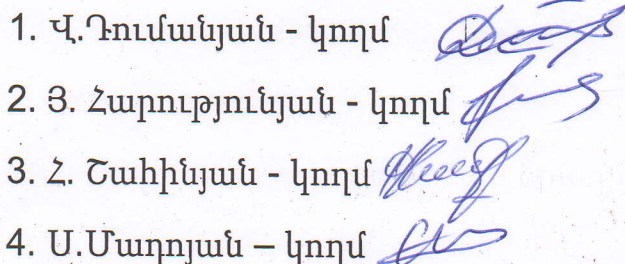 1. Վ.Դումանյան - կողմ
2. Յ. Հարությունյան - կողմ
3. Հ. Շահինյան - կողմ
4. Ս.Մադոյան – կողմ